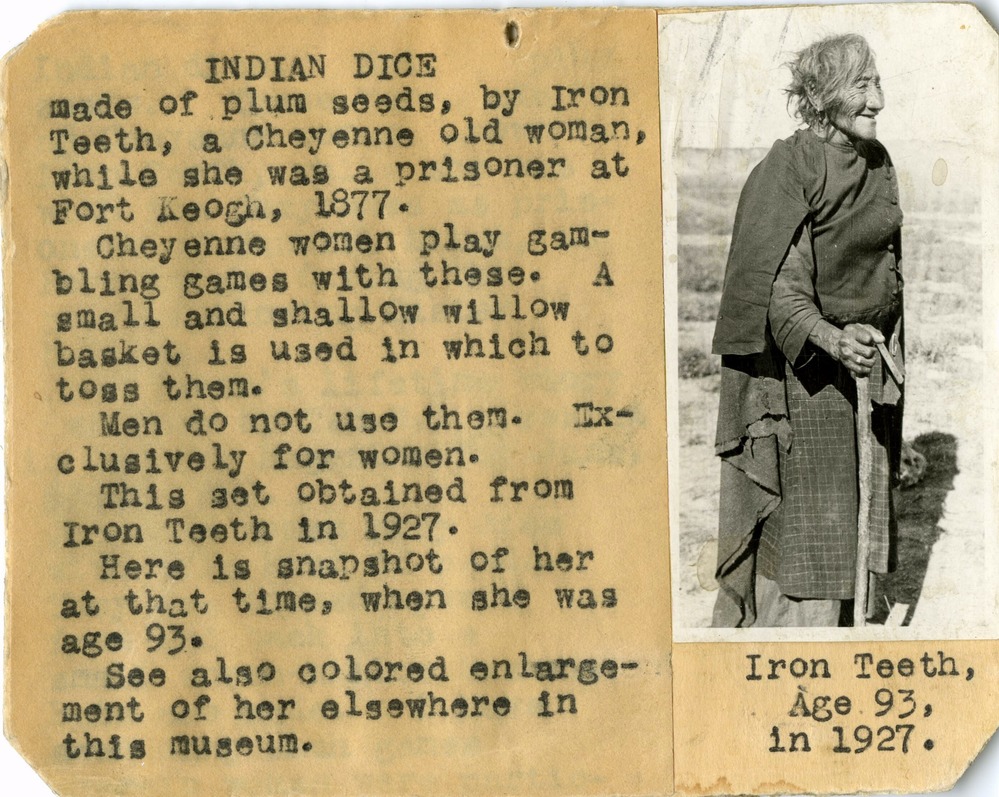 INDIAN DICE
made of plum seeds, by Iron
Teeth, a Cheyenne old woman,
while she was a prisoner at
Fort Keogh, 1877.
Cheyenne women play gam-
bling games with these. A
small and shallow willow
basket is used in which to
toss them.
Men do not use them. Ex-
clusively for women.
This set obtained from
Iron Teeth in 1927.
Here is snapshot of her
at that time, when she was
age 93.
See also colored enlarge-
ment of her elsewhere in
this museum.
Iron Teeth,
Age 93,
in 1927.